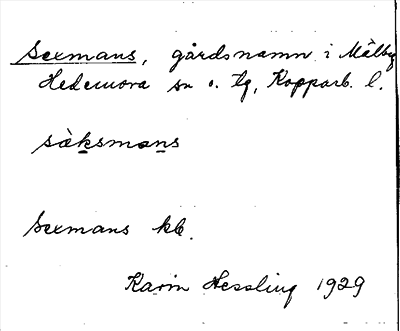 Sexmans, gårdsnamn i Mälby
Hedemora sn o. tg, Kopparb. l.
säksmans
Sexmans kb.
Karin Hessling 1929